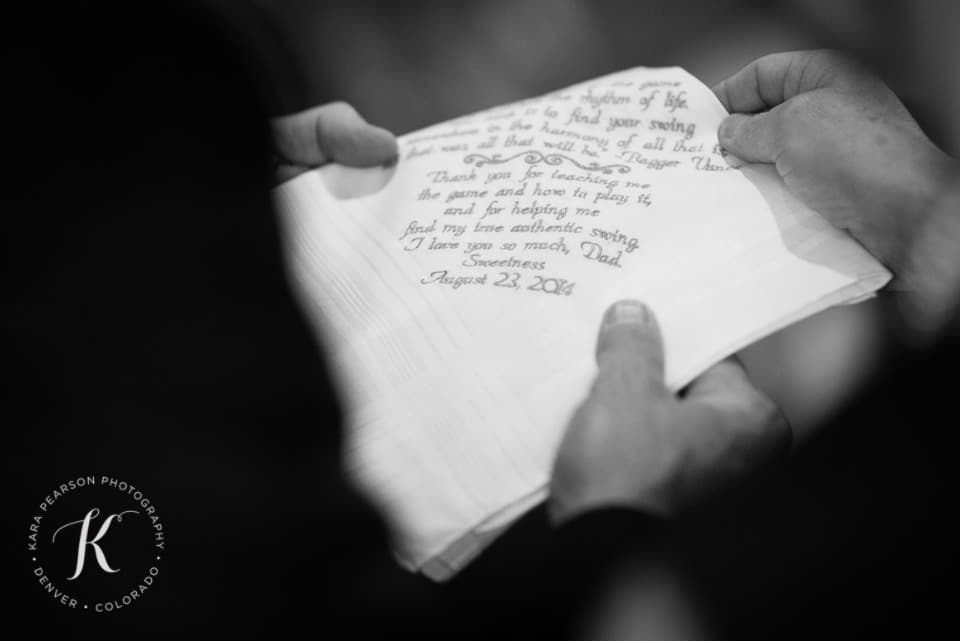 the game
the rhythm of life.
is to find your swing
somewhere in the harmony of all that is
that was, all that will be." -Bagger Van
Thank you for teaching me
the game and how to play it,
and for helping me
find my true authentic swing
I love you so much, Dad.
Sweetness
August 23, 2014
KARA PEARSON PHOTOGRAPHY
K
DENVER • COLORADO